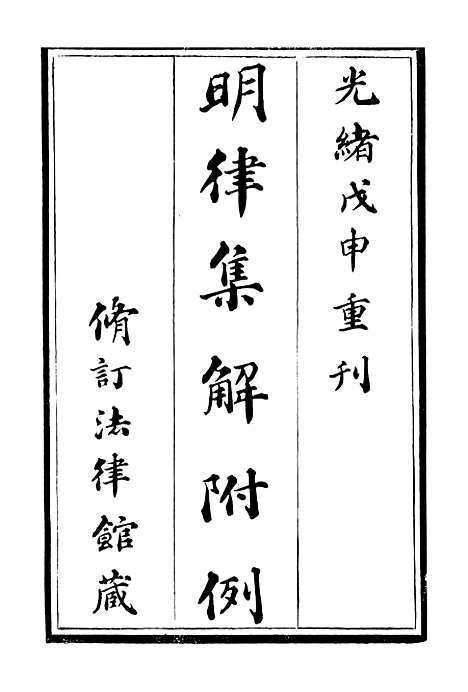 光緒戊申重刊
明律集解附例
脩訂法律館藏